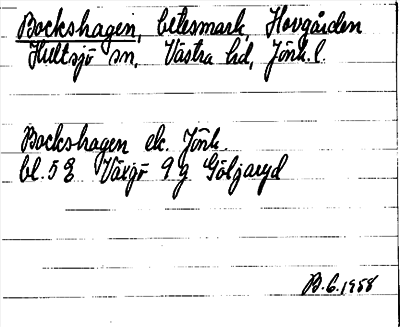 Bockshagen, betesmark, Hovgården
Hultsjö sn, Västra hd, Jönk. l.
Bockshagen ek. Jönk.
bl. 58 Växjö 9 g Göljaryd
B.G. 1958